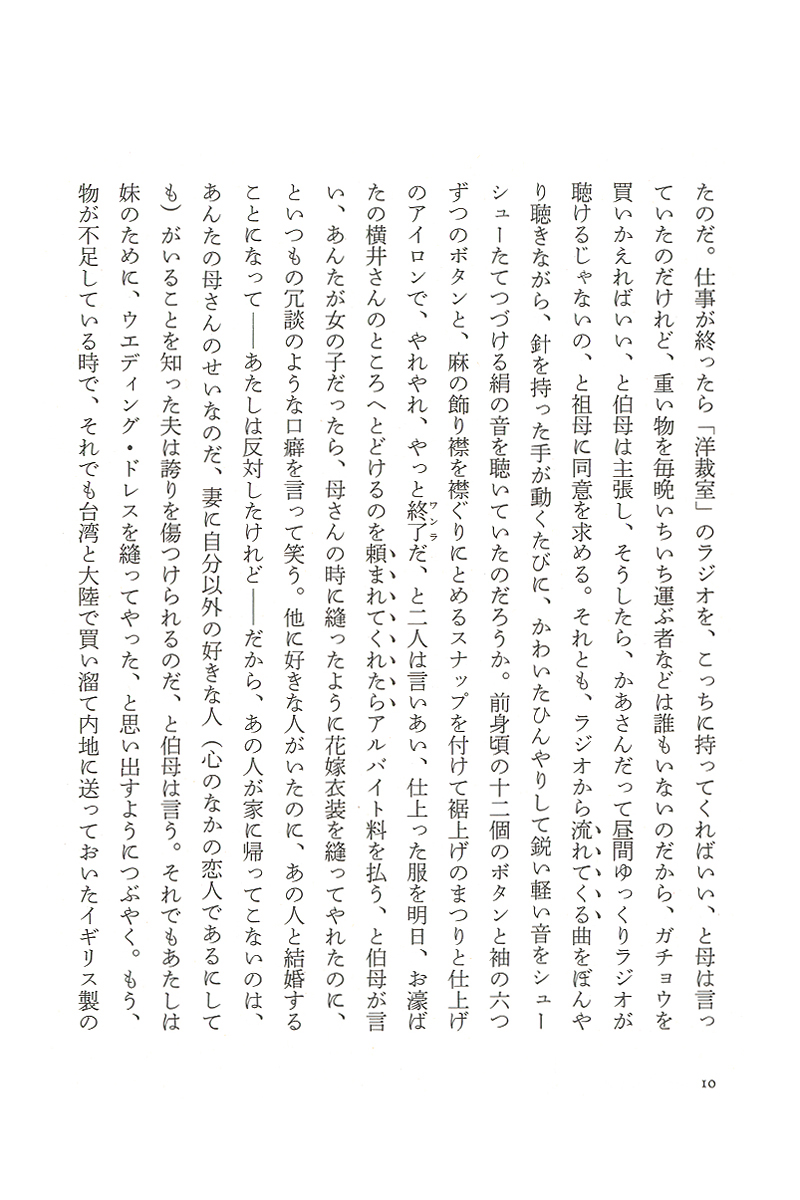 たのだ。仕事が終ったら「洋裁室」のラジオを、こっちに持ってくればいい、と母は言っ
ていたのだけれど、重い物を毎晩いちいち運ぶ者などは誰もいないのだから、ガチョウを
買いかえればいい、と伯母は主張し、そうしたら、かあさんだって昼間ゆっくりラジオが
聴けるじゃないの、と祖母に同意を求める。それとも、ラジオから流れてくる曲をぼんや
り聴きながら、針を持った手が動くたびに、かわいたひんやりして鋭い軽い音をシュー
シューたてつづける絹の音を聴いていたのだろうか。前身頃の十二個のボタンと袖の六つ
ずつのボタンと、麻の飾り襟を襟ぐりにとめるスナップを付けて裾上げのまつりと仕上げ
のアイロンで、やれやれ、やっと終了だ、と二人は言いあい、仕上った服を明日、お濠ば
ワンラ
たの横井さんのところへとどけるのを頼まれてくれたらアルバイト料を払う、と伯母が言
い、あんたが女の子だったら、母さんの時に縫ったように花嫁衣装を縫ってやれたのに、
といつもの冗談のような口癖を言って笑う。他に好きな人がいたのに、あの人と結婚する
ことになって――あたしは反対したけれど――だから、あの人が家に帰ってこないのは、
あんたの母さんのせいなのだ、妻に自分以外の好きな人（心のなかの恋人であるにして
も）がいることを知った夫は誇りを傷つけられるのだ、と伯母は言う。それでもあたしは
妹のために、ウエディング・ドレスを縫ってやった、と思い出すようにつぶやく。もう、
物が不足している時で、それでも台湾と大陸で買い溜て内地に送っておいたイギリス製の
10